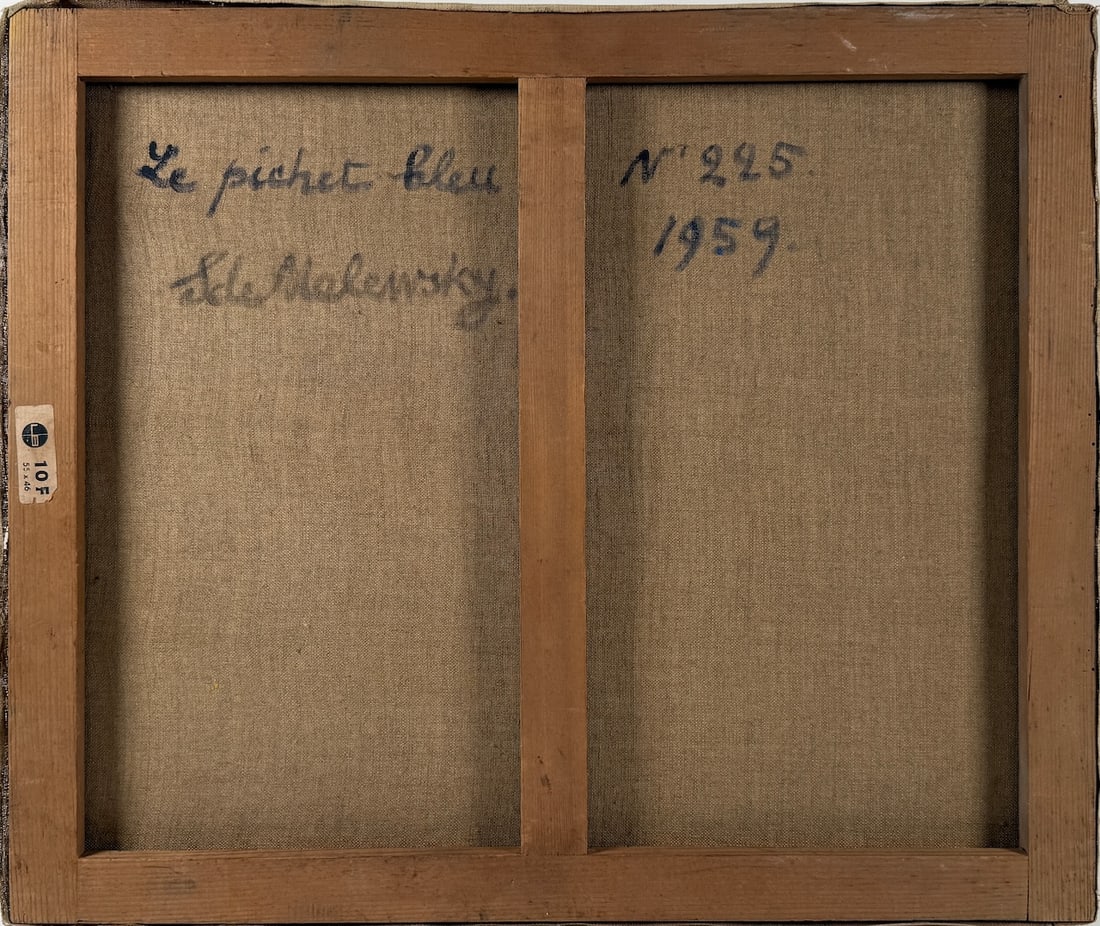 Le pichet bleu
de Malewsky.
N° 225.
1959.
10 F
55 x 46